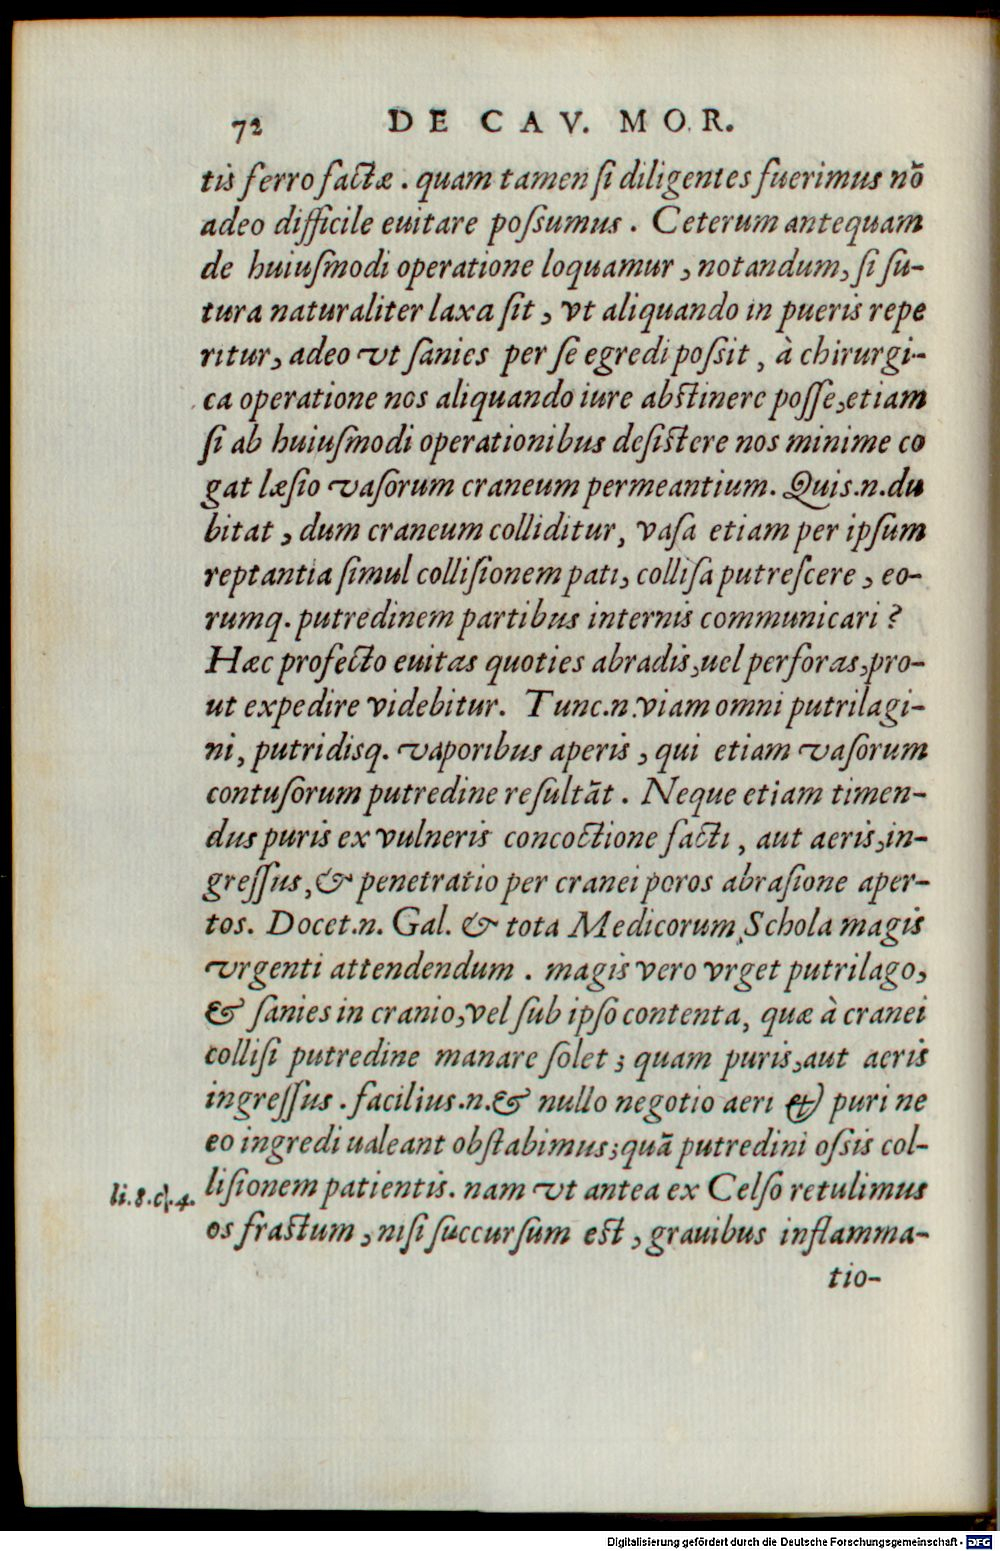 72 DE CAV. MOR.
tis ferro factæ . quam tamen ſi diligentes fuerimus nõ
adeo difficile euitare poſsumus . Ceterum antequam
de huiuſmodi operatione loquamur , notandum, ſi ſu-
tura naturaliter laxa ſit , vt aliquando in pueris repe
ritur, adeo vt ſanies per ſe egredi poſsit , à chirurgi-
ca operatione nos aliquando iure abſtinere poſſe,etiam
ſi ab huiuſmodi operationibus deſiſtere nos minime co
gat læſio vaſorum craneum permeantium. Quis.n.du
bitat , dum craneum colliditur, vaſa etiam per ipſum
reptantia ſimul colliſionem pati, colliſa putreſcere , eo-
rumq. putredinem partibus internis communicari ?
Hæc profecto euitas quoties abradis,uel perforas,pro-
ut expedire videbitur. Tunc.n.viam omni putrilagi-
ni, putridisq. vaporibus aperis , qui etiam vaſorum
contuſorum putredine reſultãt . Neque etiam timen-
dus puris ex vulneris concoctione facti , aut aeris,in-
greſſus, & penetratio per cranei poros abraſione aper-
tos. Docet.n. Gal. & tota Medicorum Schola magis
vrgenti attendendum . magis vero vrget putrilago,
& ſanies in cranio,vel ſub ipſo contenta, quæ à cranei
colliſi putredine manare ſolet ; quam puris,aut aeris
ingreſſus . facilius.n.& nullo negotio aeri & puri ne
eo ingredi ualeant obſtabimus;quã putredini oſsis col-
liſionem patientis. nam vt antea ex Celſo retulimus
li.8.c.4.
os fractum , niſi ſuccurſum eſt , grauibus inflamma-
tio-
Digitalisierung gefördert durch die Deutsche Forschungsgemeinschaft - DFG